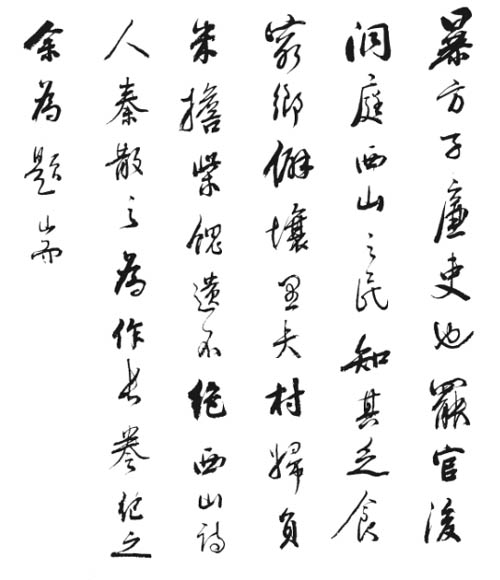 暴方子廉吏也罷官後
洞庭西山之民知其乏食
窮鄉僻壤里夫村婦負
米擔柴餽遺不絕西山詩
人秦散之為作長卷紀之
余為題耑